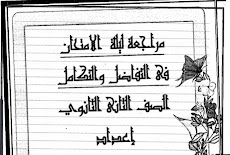 مراجعة ليلة الامتحان
فى التفاضل والتكامل
الصف الثانى الثانوي
إعداد